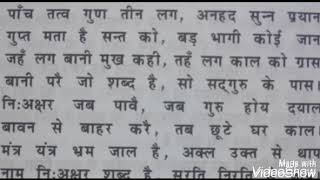 पाँच तत्व गुण तीन लग, अनहद सुन्न प्रयान
गुप्त मता है सन्त को, बड़ भागी कोई जान
जहँ लग बानी मुख कही, तहँ लग काल को ग्रास
बानी परै जो शब्द है, सो सद्गुरु के पास।
निःअक्षर जब पावै, जब गुरु होय दयाल
बावन से बाहर करै, तब छूटे घर काल।
मंत्र यंत्र भ्रम जाल है, अक्ल उक्त से थाप
नाम निःअक्षर शब्द है, सुरति निरति
Made with
VideoShow